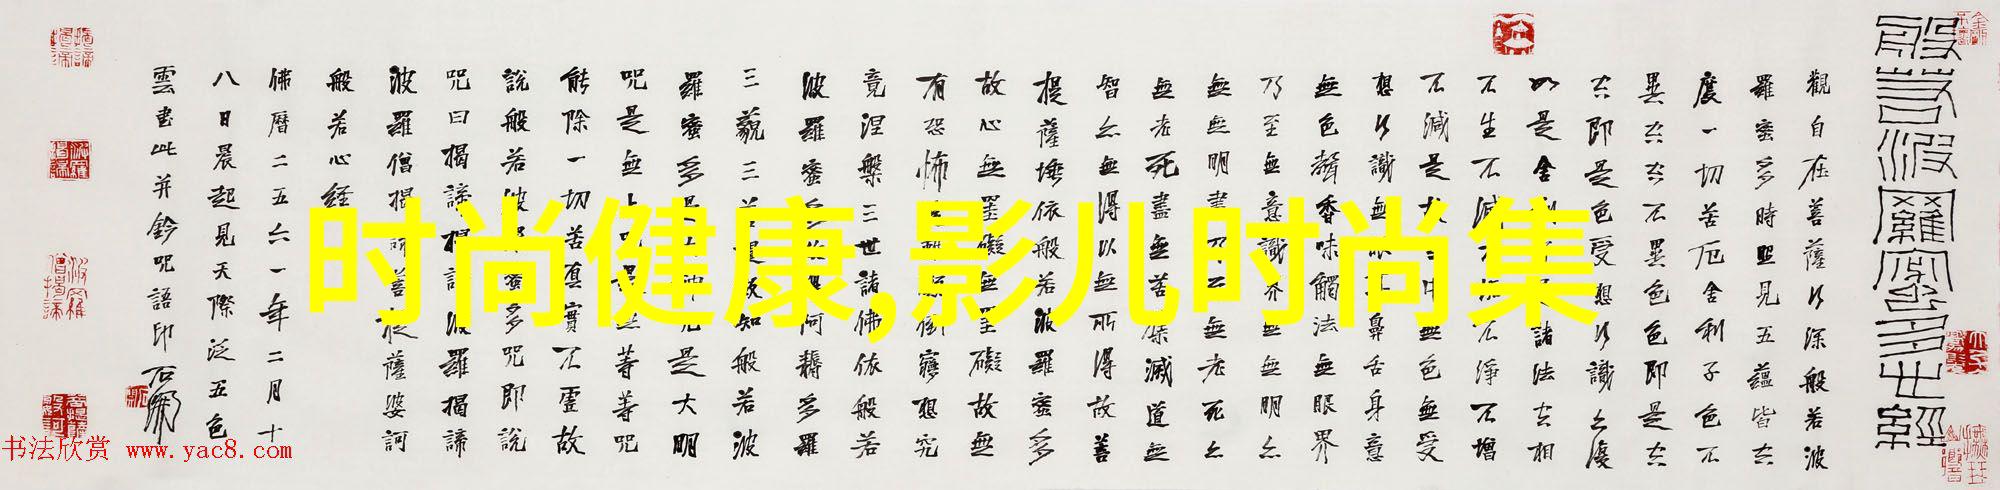 般若波羅蜜多心經
觀自在菩薩行深般若波
羅蜜多時照見五蘊皆空
度一切苦厄舍利子色不
異空空不異色色即是空
空即是色受想行識亦復
如是舍利子是諸法空相
不生不滅不垢不淨不增
不減是故空中無色無受
想行識無眼耳鼻舌身意
無色聲香味觸法無眼界
乃至無意識界無無明亦
無無明盡乃至無老死亦
無老死盡無苦集滅道無
智亦無得以無所得故菩
提薩埵依般若波羅蜜多
故心無罣礙無罣礙故無
有恐怖遠離顛倒夢想究
竟涅槃三世諸佛依般若
波羅蜜多故得阿耨多羅
三藐三菩提故知般若波
羅蜜多是大神咒是大明
咒是無上咒是無等等咒
能除一切苦真實不虛故
說般若波羅蜜多咒即說
咒曰揭諦揭諦波羅揭諦
波羅僧揭諦菩提薩婆訶
般若心経
佛曆二五六一年二月十
八日晨起見天際泛五色
雲書此并鈐咒語印
时尚健康,影儿时尚集
书法欣赏 www.yac8.com